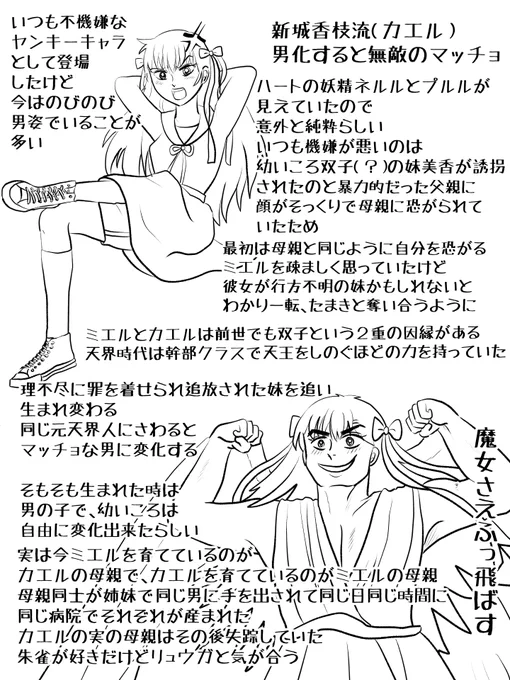 いつも不機嫌な
ヤンキーキャラ
として登場
したけど
今はのびのび
男姿でいることが
多い
新城香枝流(カエル)
男化すると無敵のマッチョ
ハートの妖精ネルルとプルルが
見えていたので
意外と純粋らしい
いつも機嫌が悪いのは
幼いころ双子(?)の妹美香が誘拐
されたのと暴力的だった父親に
顔がそっくりで母親に恐がられて
いたため
最初は母親と同じように自分を恐がる
ミエルを疎ましく思っていたけど
彼女が行方不明の妹かもしれないと
わかり一転、たまきと奪い合うように
ミエルとカエルは前世でも双子という2重の因縁がある
天界時代は幹部クラスで天王をしのぐほどの力を持っていた
理不尽に罪を着せられ追放された妹を追い
生まれ変わる
同じ元天界人にさわると
マッチョな男に変化する
そもそも生まれた時は
男の子で、幼いころは
自由に変化出来たらしい
実は今ミエルを育てているのが
カエルの母親で、カエルを育てているのがミエルの母親
母親同士が姉妹で同じ男に手を出されて同じ日同じ時間に
同じ病院でそれぞれが産まれた
カエルの実の母親はその後失踪していた
朱雀が好きだけどリュウガと気が合う
魔女さえぶっ飛ばす